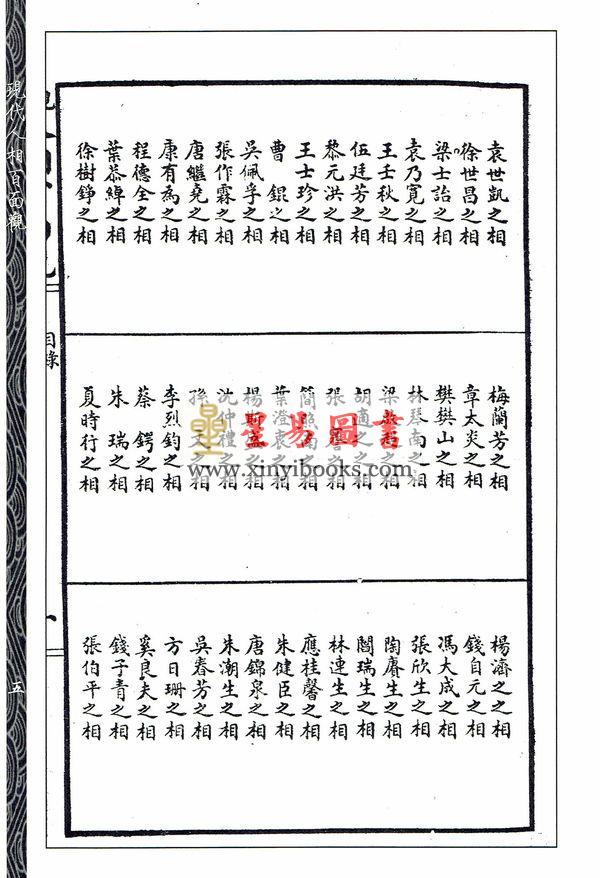 袁世凱之相
徐世昌之相
梁士詒之相
袁乃寬之相
王壬秋之相
伍廷芳之相
黎元洪之相
王士珍之相
曹 錕之相
吳佩孚之相
張作霖之相
唐繼堯之相
康有為之相
程德全之相
葉恭綽之相
徐樹錚之相
梅蘭芳之相
章太炎之相
樊樊山之相
林琴南之相
梁 之相
胡適之之相
張 之相
簡照南之相
葉澄衷之相
楊斯盛之相
沈仲禮之相
孫 文之相
李烈鈞之相
蔡 鍔之相
朱 瑞之相
夏時行之相
楊濟之之相
錢自元之相
馮大成之相
張欣生之相
陶賡生之相
閻瑞生之相
林連生之相
應桂馨之相
朱健臣之相
唐錦泉之相
朱潮生之相
吳春芳之相
方日珊之相
奚良夫之相
錢子青之相
張伯平之相
目錄
現代人相百面觀
五
星易圖書
www.xinyibooks.com